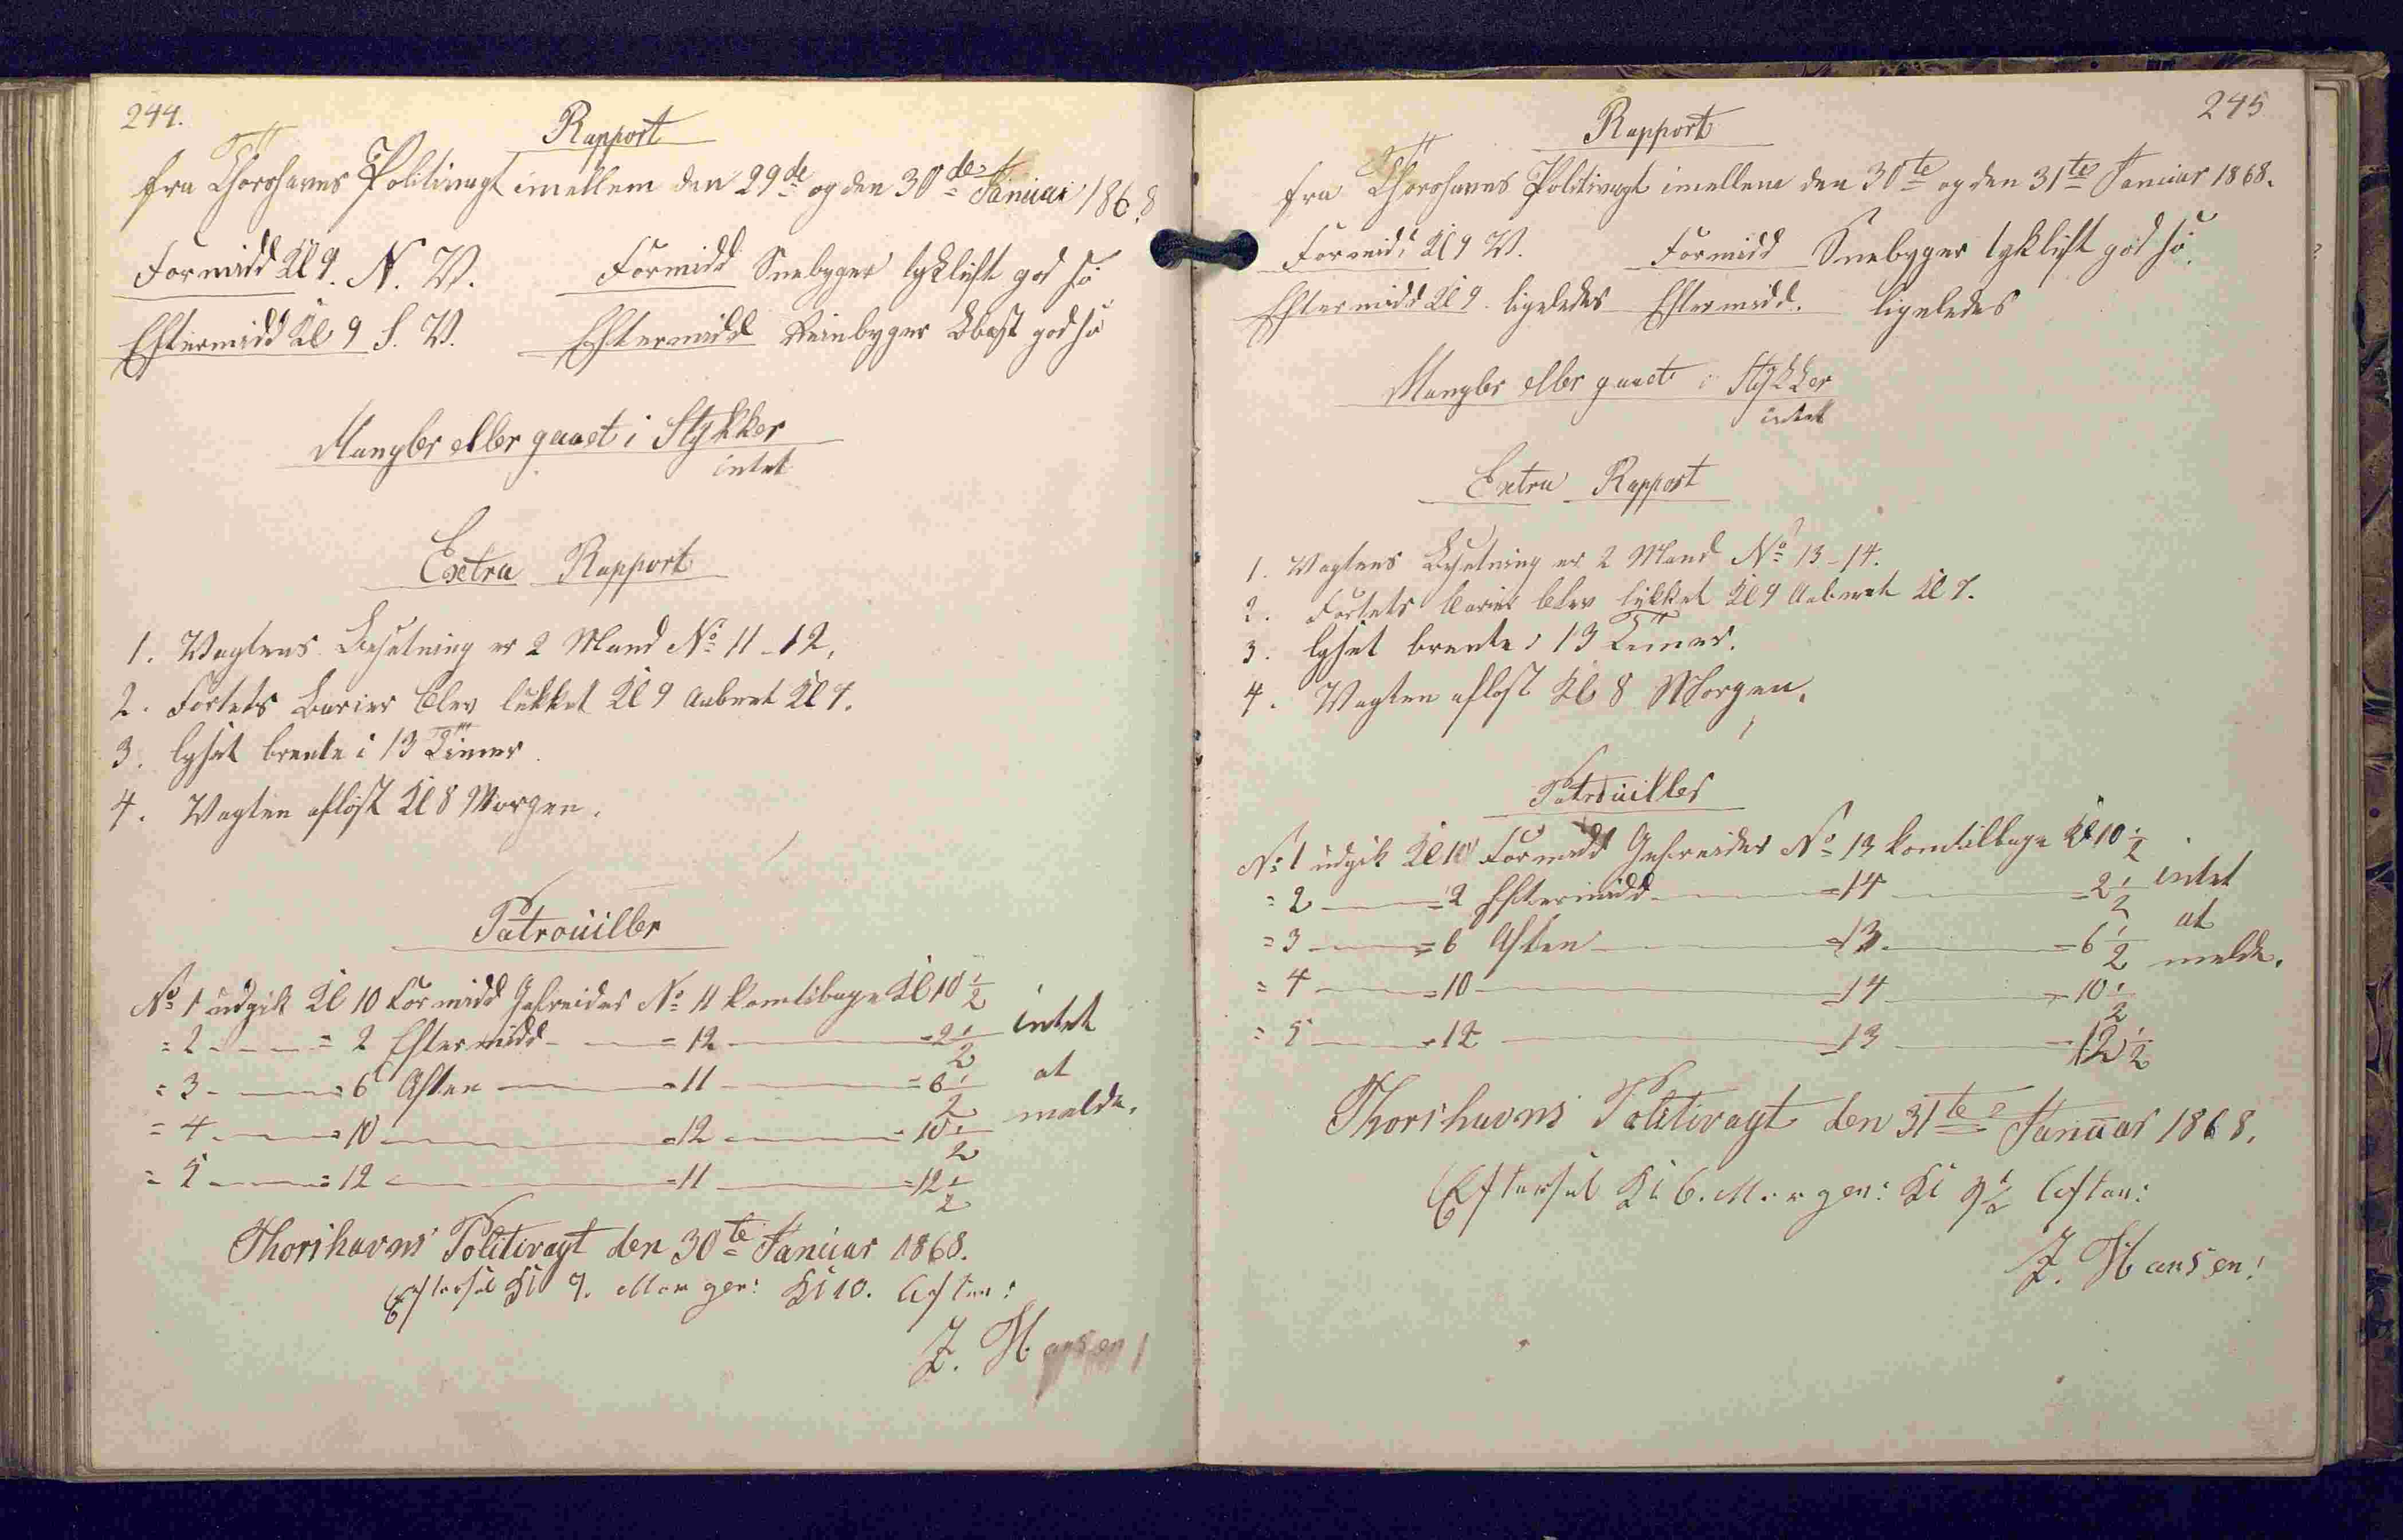 244.
Rapport
fra Thorshavns Politivagt imellem den 29de og den 30de Januar 1868
Formidd Kl 9. N. V. Formidd Snebyger lykluft god sö
Eftermidd Kl 9 S. V. Eftermidd Reinbyger god sö
Mangler eller gaaet i Stykker
intet
Extra Rapport
1. Vagtens Besetning er 2 Mand No 11-12.
2. Fortets Barier blev lukket Kl 9 Aabnet Kl 7.
3. Lyset brente i 13 Timer
4. Vagten aflöst Kl 8 Morgen.
Patrouiller
No 1 udgik Kl 10 Formidd Gefreider No 11 komtilbage Kl 10 1/2
= 2 = 2 Eftermidd = 12 = 2 1/2 intet
= 3 = 6 Aften = 11 = 6 1/2 at
= 4 = 10 = 12 = 10 1/2 melde.
= 5 = 12 = 11 = 12 1/2
Thorshavns Politivagt den 30te Januar 1868.
Eftersét Kl 7. Morgen: Kl 10. Aften:
J. Hansen!
245
Rapport
fra Thorshavns Politivagt imellem den 30te og den 31te Januar 1868.
Formidd Kl 9 V. Formidd Snebyger lykluft god sö.
Eftermidd Kl 9. ligeledes Eftermidd. ligeledes
Mangler eller gaaet i Stykker
intet
Extra Rapport
1. Vagtens Besetning er 2 Mand No 13-14.
2. Fortets Barier blev lukket Kl 9 Aabnet Kl 7.
3. Lyset brente i 13 Timer.
4. Vagten aflöst Kl 8 Morgen.
Patrouiller
No 1 udgik Kl 10 Formidd Gefreider No 13 komtilbage Kl 10 1/2
= 2 = 2 Eftermidd = 14 = 2 1/2 intet
= 3 = 6 Aften = 13 = 6 1/2 at
= 4 = 10 = 14 = 10 1/2 melde.
= 5 = 12 = 13 = 12 1/2
Thorshavns Politivagt den 31te Januar 1868.
Eftersét Kl 6. Morgen: Kl 9 1/2 Aften:
J. Hansen!